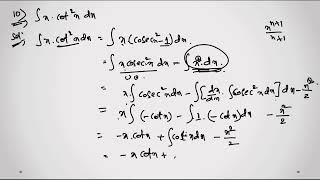 10) ∫x.cot²x dx
x^(n+1)/(n+1)
Sol: ∫x.cot²x dx = ∫x(cosec²x-1)dx
= ∫x cosec²x dx - ∫x.dx
= x∫cosec²x dx - ∫[d/dx x . ∫cosec²x dx]dx - x²/2
= x∫(-cotx) - ∫1.(-cotx)dx - x²/2
= -x.cotx + ∫cotx dx - x²/2
= -x cotx +